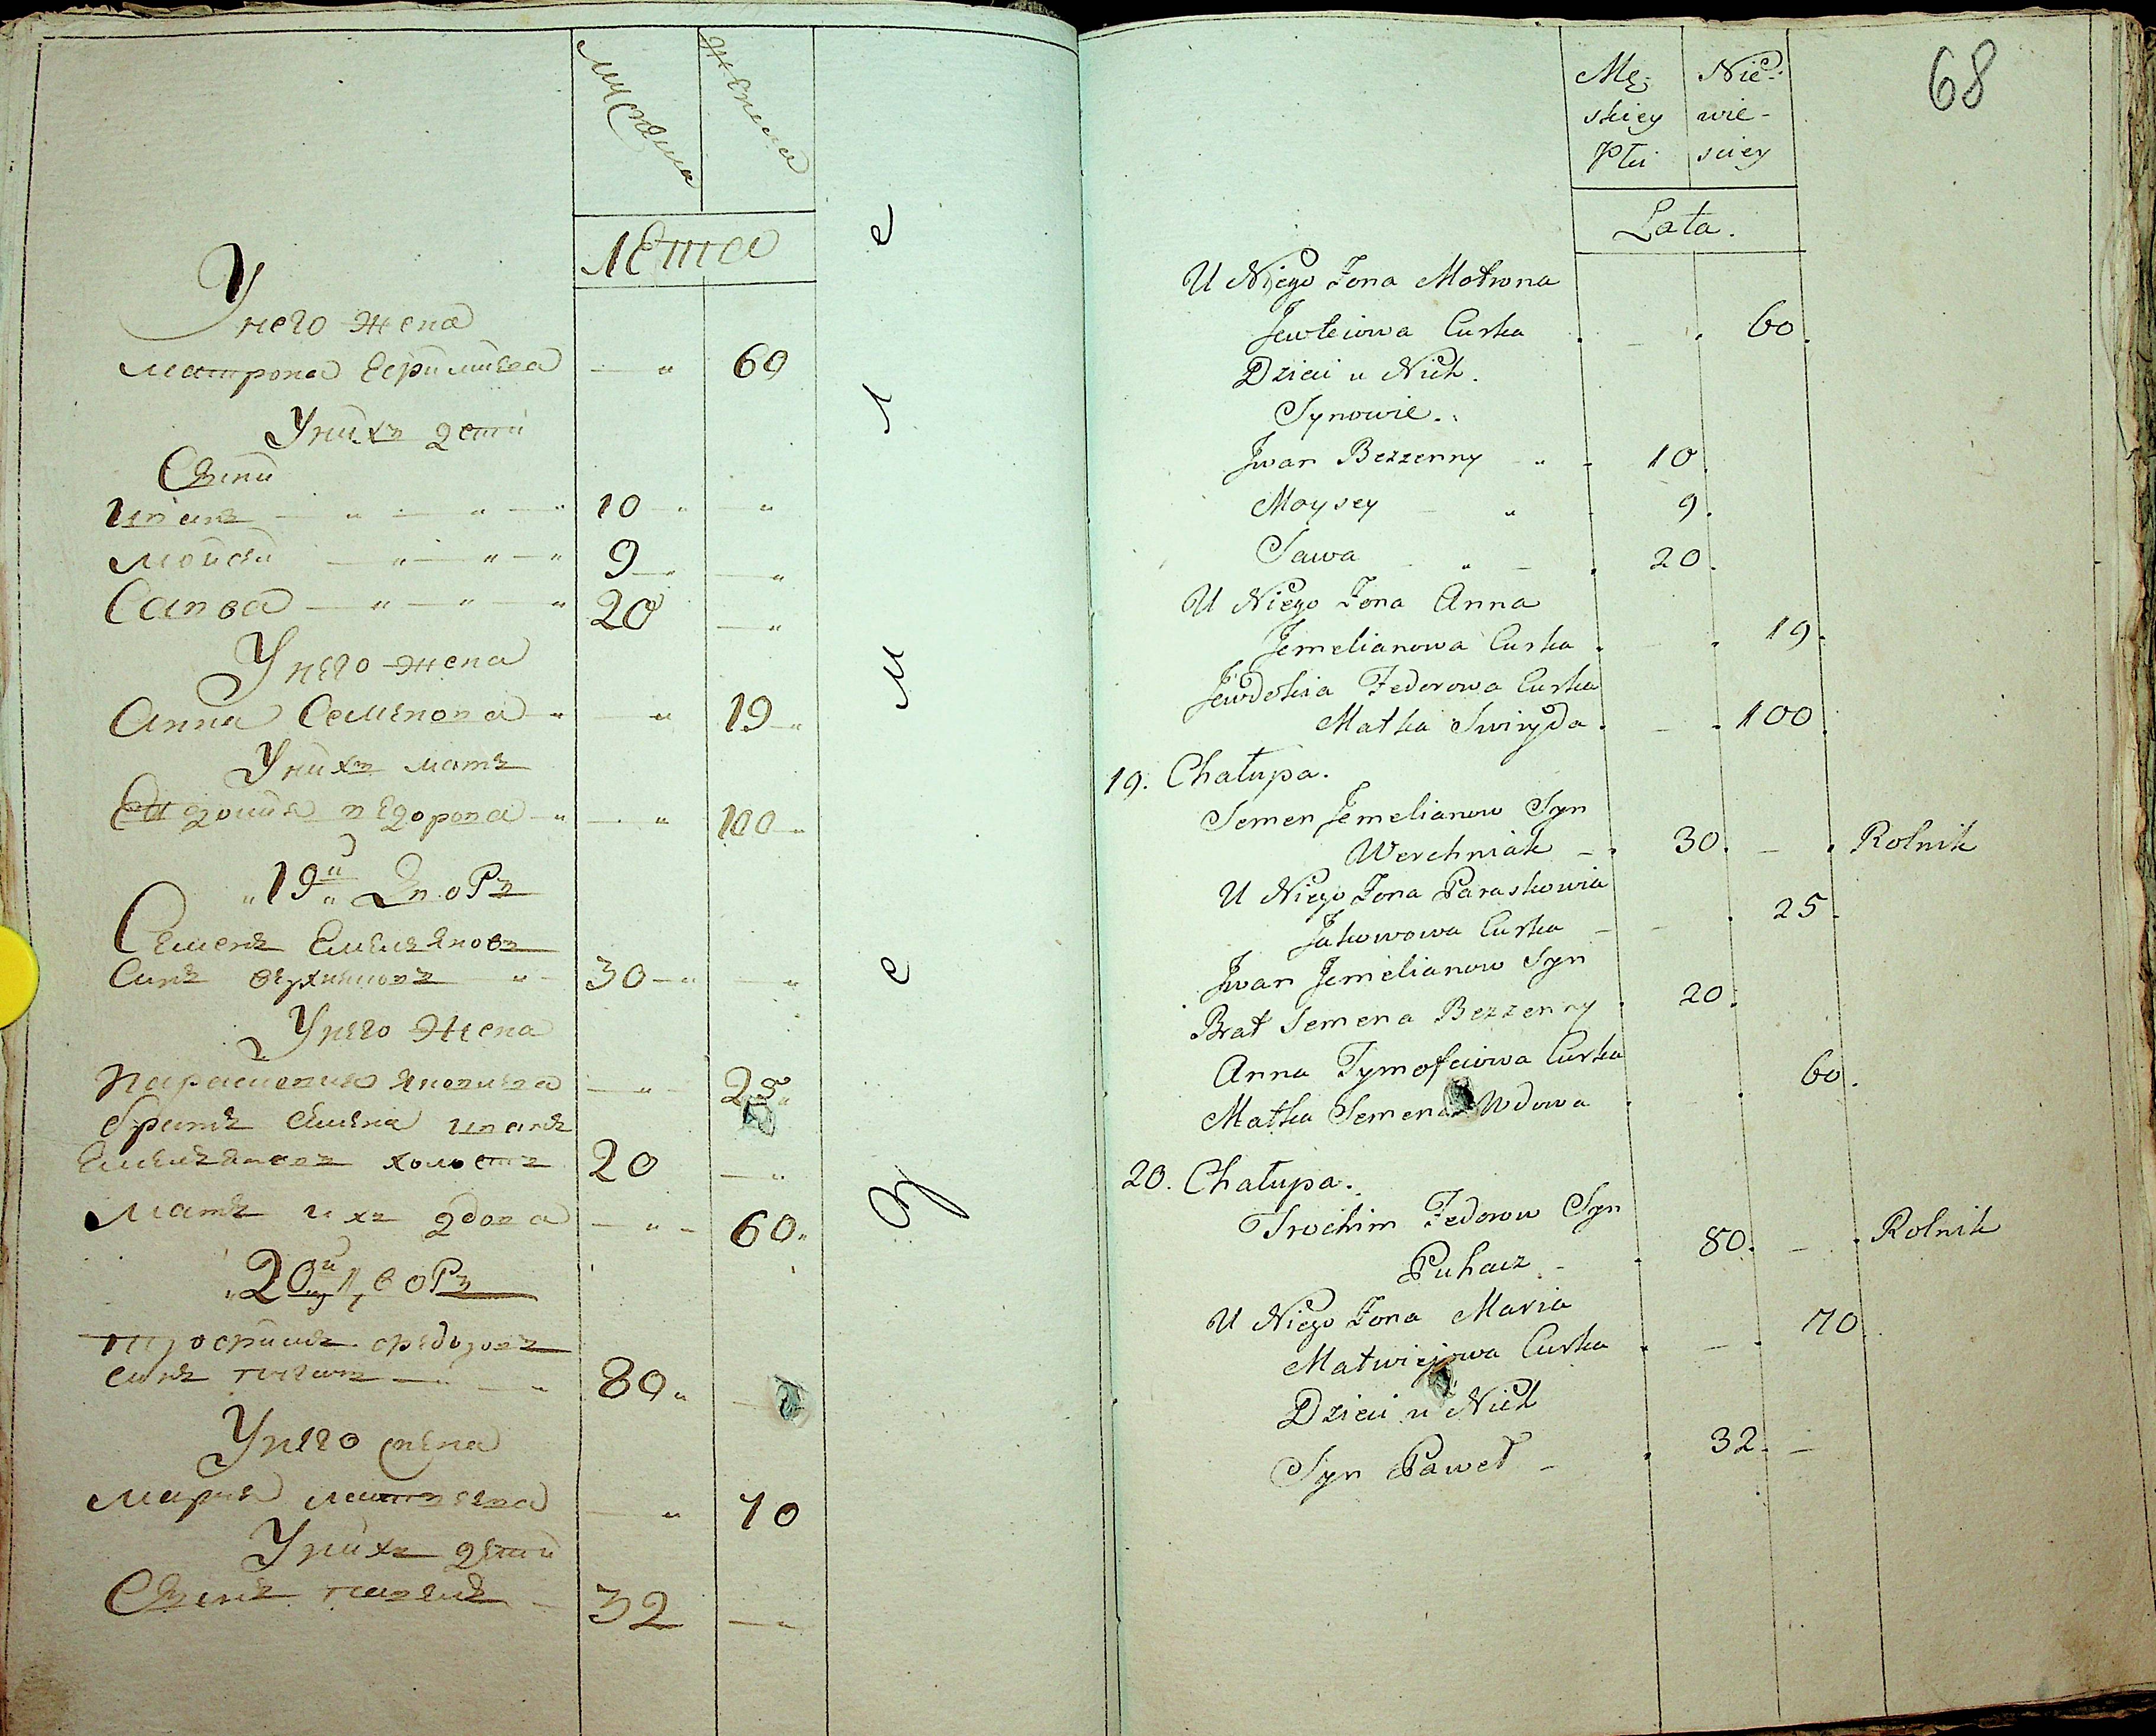 мужеска
женска
лета
У него жена
Матрона
60
У них дети
Сыни
Иванъ
10
Мойсей
9
Савва
20
У него жена
Анна Семенова
19
У нихъ мать
Федорова
100
19й Дворъ
Семенъ Емельяновъ
Синъ
30
У него Жена
Парасковия
25
братъ Семена Иванъ
Емельяновъ холостъ
20
Мать ихъ вдова
60
20й Дворъ
Трофимъ Федоровъ
синъ
80
У него жена
Мария Матвеева
70
У нихъ дети
Синъ Павелъ
32
е
л
м
е
68
Mę- Nie-
skiey wie-
Płci sciey
Lata.
U Niego Żona Motrona
Jewteiowa Curka 60
Dzieci u Nich.
Synowie.
Jwan Bezzenny 10
Moysey 9.
Sawa 20.
U Niego Żona Anna
Jemelianowa Curka 19.
Jewdokia Fedorowa Curka
Matka Swiryda 100
19. Chałupa.
Semen Jemelianow Syn
Werchniak 30. Rolnik
U Niego Żona Paraskowia
Jakowowa Curka 25.
Jwan Jemelianow Syn
Brat Semena Bezzenny 20.
Anna Tymofeiowa Curka
Matka Semena Wdowa 60.
20. Chałupa.
Trochim Fedorow Syn
Puhacz 80. Rolnik
U Niego Żona Maria
Matwiejowa Curka 70
Dzieci u Nich
Syn Paweł 32.